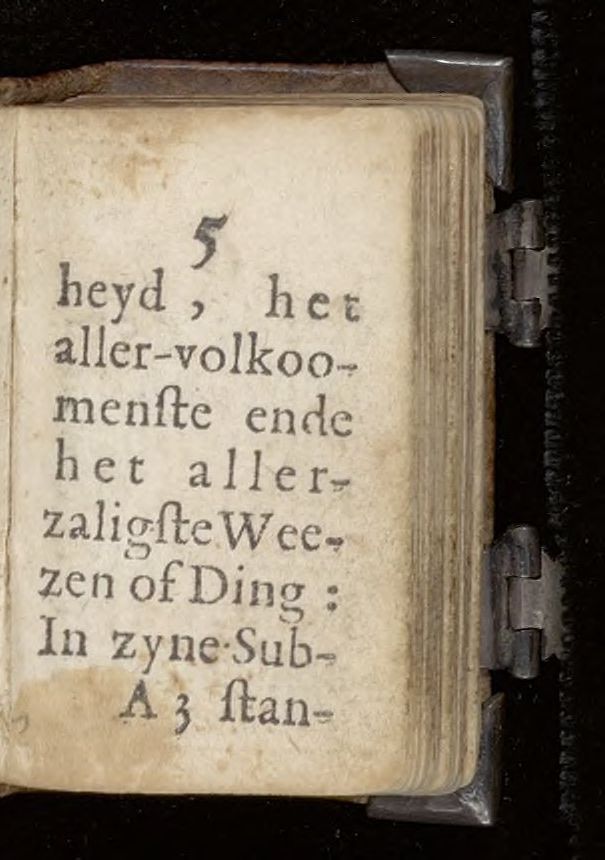 5
heyd , het
aller-volkoo-
menſte ende
het aller-
zaligſte Wee-
zen of Ding :
In zyne Sub-
A 3 ſtan-